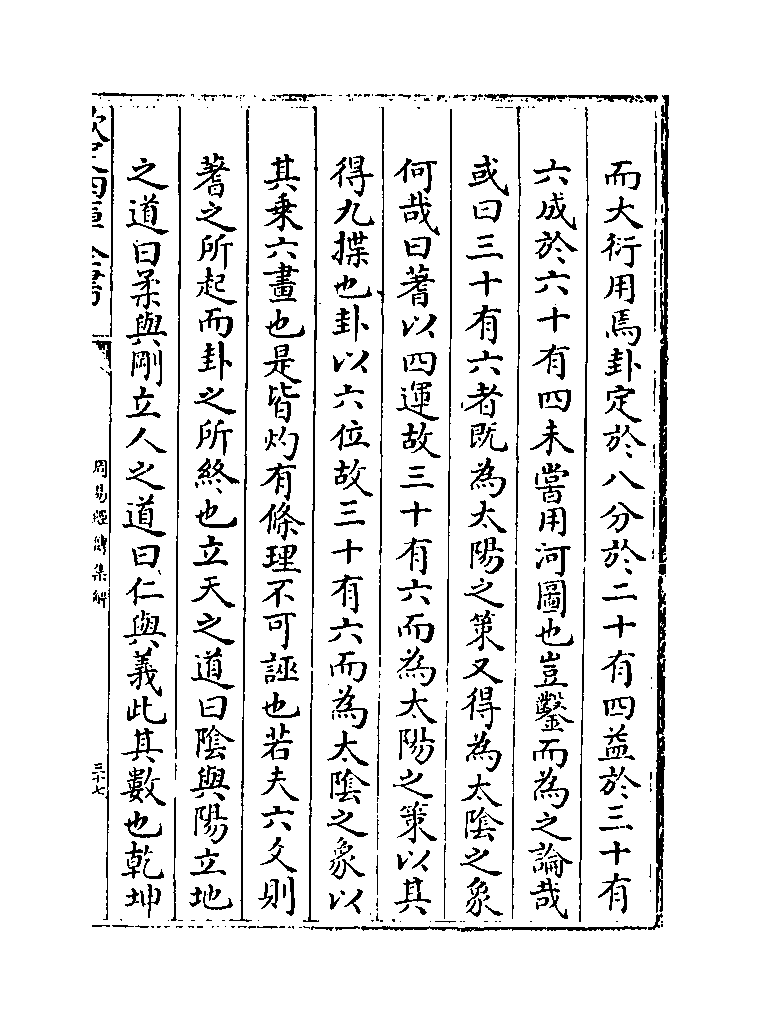 而大衍用焉卦定於八分於二十有四益於三十有
六成於六十有四未嘗用河圖也豈鑿而為之論哉
或曰三十有六者既為太陽之策又得為太陰之象
何哉曰蓍以四運故三十有六而為太陽之策以其
得九揲也卦以六位故三十有六而為太陰之象以
其乗六畫也是皆灼有條理不可誣也若夫六爻則
蓍之所起而卦之所終也立天之道曰隂與陽立地
之道曰柔與剛立人之道曰仁與義此其數也乾坤
周易經傳集解
三十七